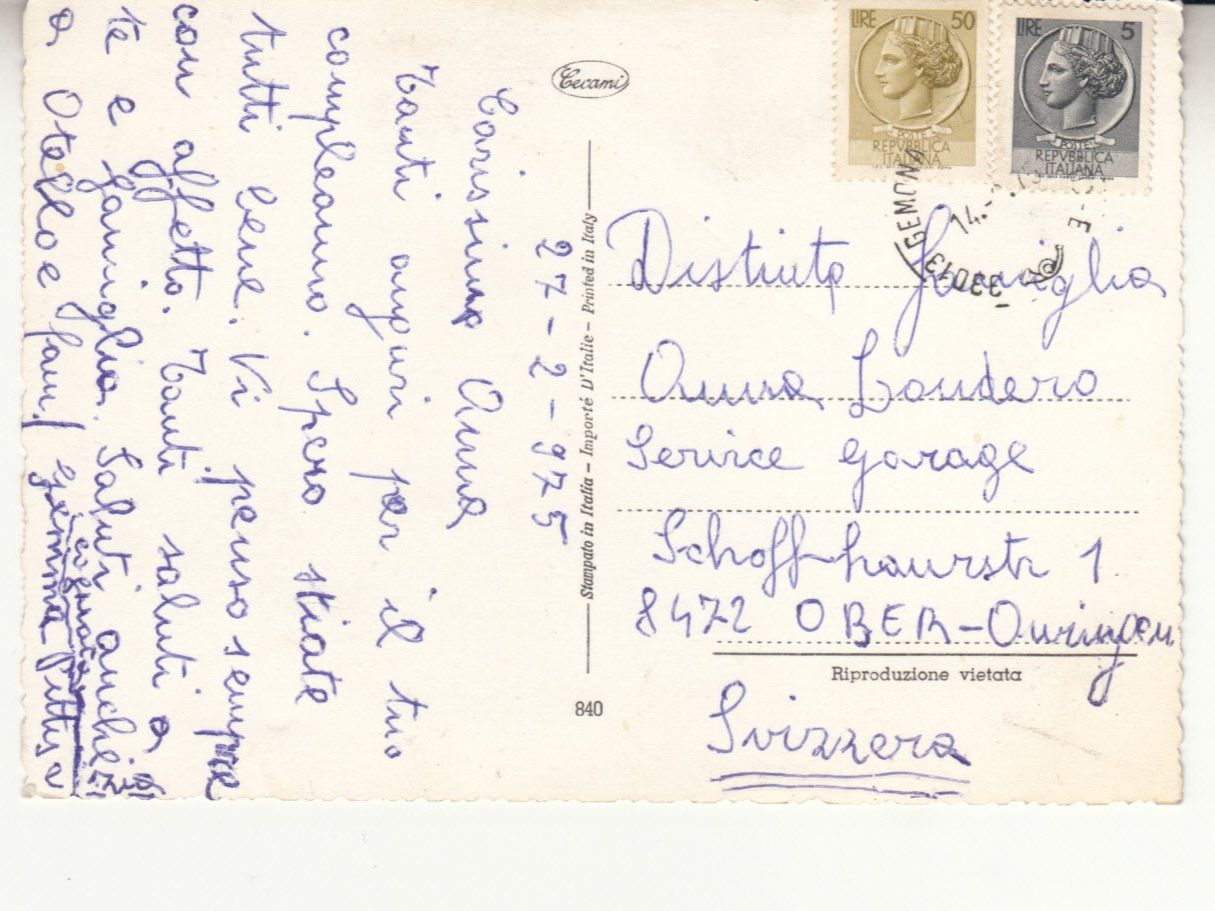 Cecami
LIRE 50
POSTE
REPVBBLICA
ITALIANA
LIRE 5
POSTE
REPVBBLICA
ITALIANA
33013 GEMONA
14.
27-2-975
Carissima Anna
Tanti auguri per il tuo
compleanno. Spero stiate
tutti bene. Vi penso sempre
con affetto. Tanti saluti a
te e famiglia. Saluti anche
a Otello e fam/
zia
Gemma
Stampato in Italia - Importé D'Italie - Printed in Italy
840
Distinta Famiglia
Anna Londero
Service Garage
Schoffhaurstr 1
8472 OBER-Ouringen
Riproduzione vietata
Svizzera